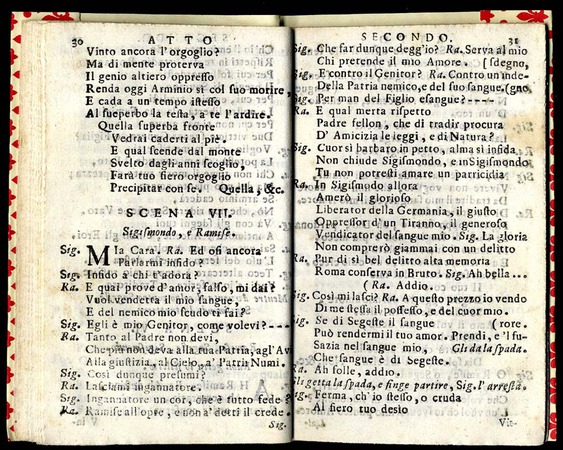 30 ATTO
Vinto ancora l'orgoglio?
Ma di mente proterva
Il genio altiero oppresso
Renda oggi Arminio sì col suo morire,
E cada a un tempo istesso
Al superbo la testa, a te l'ardire.
Quella superba fronte
Vedrai caderti al piè.
E qual scende dal monte
Svelto dagli anni scoglio,
Farà tuo fiero orgoglio
Precipitar con se. Quella, &c.
SCENA VII.
Sigismondo, e Ramise.
Sig. MIa Cara. Ra. Ed osi ancora
Parlarmi infido?
Sig. Infido a chi t'adora?
Ra. E qual prove d'amor, falso, mi dai?
Vuoi vendetta il mio sangue,
E del nemico mio scudo ti fai?
Sig. Egli è mio Genitor, come volevi?----
Ra. Tanto al Padre non devi,
Che più non deva alla tua Patria, agl'Av
Alla giustizia, al Cielo, a' Patrii Numi.
Sig. Così dunque presumi?
Ra. Lasciami ingannatore.
Sig. Ingannatore un cor, che è tutto fede?
Ra. Ramise all'opre, e non a' detti il crede.
Sig.
SECONDO. 31
Sig. Che far dunque degg'io? Ra. Serva al mio
Chi pretende il mio Amore. (sdegno,
Sig. E contro il Genitor? Ra. Contro un inde-
Della Patria nemico, e del suo sangue. (gno,
Sig. Per man del Figlio esangue?----
Ra. E qual merta rispetto
Padre fellon, che di tradir procura
D' Amicizia le leggi, e di Natura?
Sig. Cuor sì barbaro in petto, alma sì infida
Non chiude Sigismondo, e in Sigismondo
Tu non potresti amare un parricidia
Ra. In Sigismodo allora
Amerò il glorioso
Liberator della Germania, il giusto
Oppressor d' un Tiranno, il generoso
Vendicator del sangue mio. Sig. La gloria
Non comprerò giammai con un delitto
Ra. Pur di sì bel delitto alta memoria
Roma conserva in Bruto. Sig. Ah bella ...
(Ra. Addio.
Sig. Così mi lasci? Ra. A questo prezzo io vendo
Di me stessa il possesso, e del cuor mio.
Sig. Se di Segeste il sangue (rore.
Può rendermi il tuo amor. Prendi, e 'l fu-
Sazia nel sangue mio, Gli dà la spada.
Che sangue è di Segeste.
Ra. Ah folle, addio.
Gli getta la spada, e finge partire, Sig. l'arresta.
Sig. Ferma, ch' io stesso, o cruda
Al fiero tuo desio
Vit-